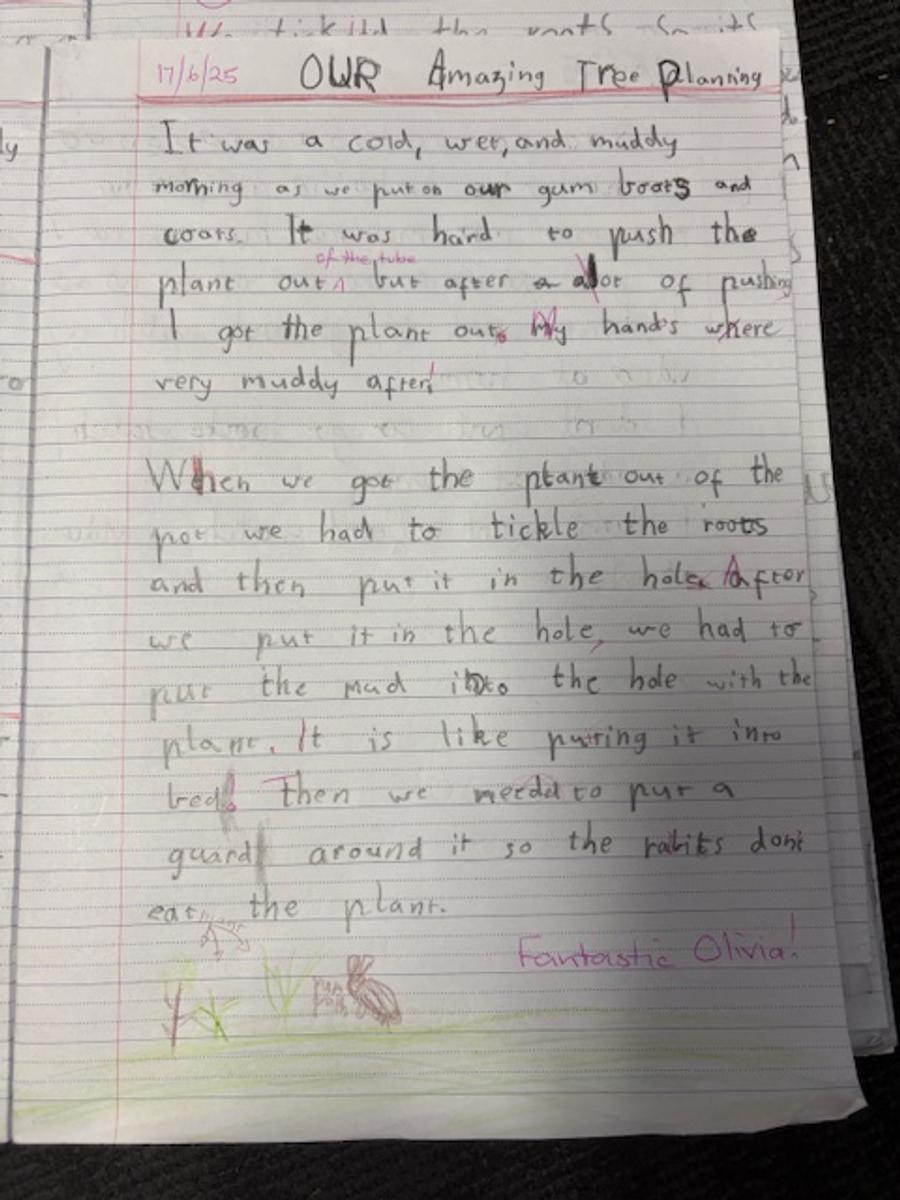 We tickild the roots so its
17/6/25 OUR Amazing Tree planning
It was a cold, wet, and muddy
morning as we put on our gum boots and
coats. It was hard to push the
of the tube
plant out ^ but after a alot of pushing
I got the plant out. My hands where
very muddy after!
When we got the plant out of the
pot we had to tickle the roots
and then put it in the hole. After
we put it in the hole, we had to
put the mud into the hole with the
plant. It is like puting it into
bed! Then we needd to put a
guard around it so the rabits dont
eat the plant.
Fantastic Olivia!